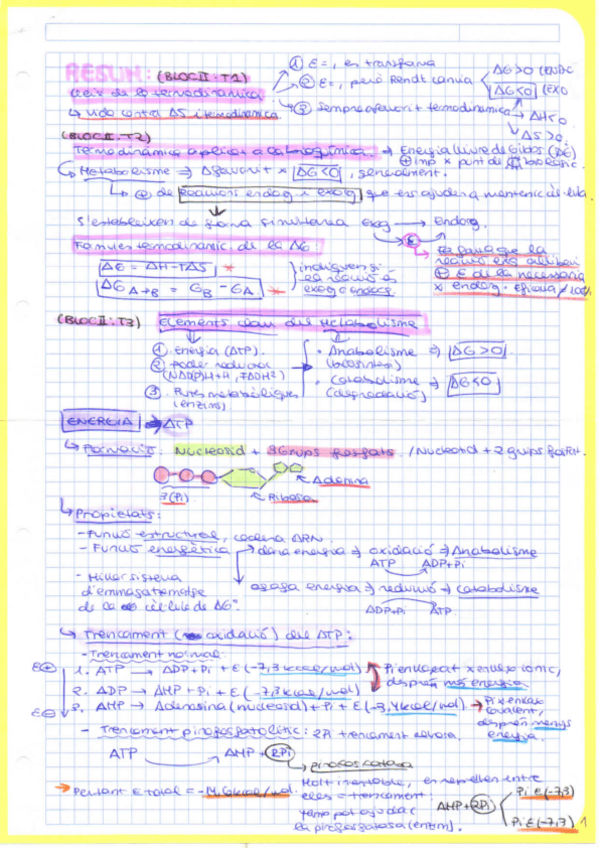 RESUM: (BLOC II: T1)
Lleis de la termodinàmica
① E=, es transforma
② E=, però Rendt canvia
ΔG>0 (ENDO
ΔG<0 (EXO
③ Sempre afavorit termodinàmica → ΔH<0
ΔS>0
↳ vida contra ΔS i termodinàmica.
(BLOC II: T2)
Termodinàmica aplicat a la bioquímica. ⇒ Energia lliure de Gibbs (ΔG)
⊕ imp x punt de biològic.
↳ Metabolisme ⇒ Afavorit x ΔG<0, generalment.
de Reaccions endog i exog que ens ajuden a mantenir
S'estableixen de forma simultànea exog → Endog.
E
Fórmules termodinàmic. de la ΔG:
ΔG = ΔH-TΔS *
ΔG A→B = GB - GA *
indiquen si
la reacció és
exog o endog
Es fa que la
reacció exo alliberi
⊕ E de la necessària
x endog.
(BLOC II: T3) Elements claus del Metabolisme
① Energia (ATP).
② Poder reductor
(NADPH+H, FADH2)
③ Rutes metabòliques
(enzims).
· Anabolisme ⇒ ΔG>0
(biosíntesi)
· Catabolisme ⇒ ΔG<0
(degradació)
ENERGIA → ATP
↳ Formació: Nucleosid + 3 Grups fosfats. / Nucleosid + 2 grups fosfat.
3 (Pi)
Adenina
Ribosa
↳ Propietats:
- Funció estructural, cadena ARN.
- Funció energètica → dona energia ⇒ oxidació ⇒ Anabolisme
ATP ADP+Pi
- Millor sistema
d'emmagatzematge
de la cèl·lula de ΔG.
agafa energia ⇒ reducció ⇒ catabolisme
ADP+Pi ATP
↳ Trencament (oxidació) del ATP:
- Trencament normal
E⊕ 1. ATP → ADP+Pi+E (-7,3 kcal/mol)
2. ADP → AMP + Pi + E (-7,3 kcal/mol)
Pi enllaçat x enllaç iònic,
desprèn més energia.
E⊖ 3. AMP → Adenosina (nucleosid) + Pi + E (-3,4 kcal/mol)
Pi x enllaç
covalent,
desprèn menys
energia.
- Trencament pirofosfatolític: 2Pi trencament alhora.
ATP → AMP + 2Pi
pirofosfatasa
Molt inestable, es repel·len entre
elles = trencament.
la pirofosfatasa (enzim).
→ Per tant E total = -14,6 kcal/mol.
AMP + 2Pi
Pi E (-7,3)
Pi E (-7,3)
1